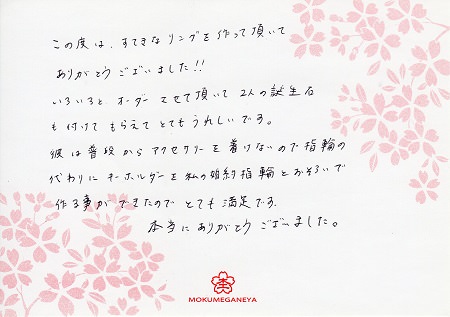 この度は、すてきなリングを作って頂いて
ありがとうございました!!
いろいろと、オーダーさせて頂いて2人の誕生石
も付けてもらえてとてもうれしいです。
彼は普段からアクセサリーを着けないので指輪の
代わりにキーホルダーを私の婚約指輪とおそろいで
作る事ができたのでとても満足です。
本当にありがとうございました。
MOKUMEGANEYA